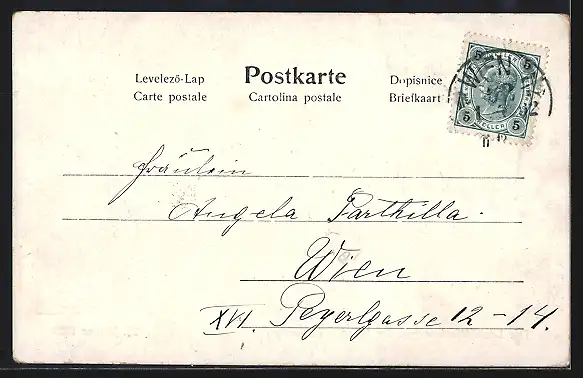 Levelező-Lap Postkarte Dopisnice
Carte postale Cartolina postale Briefkaart
5 5
WIEN
HELLER
5 5
Fräulein
Angela Parthilla.
Wien
XVI. Peyerlgasse 12-14.